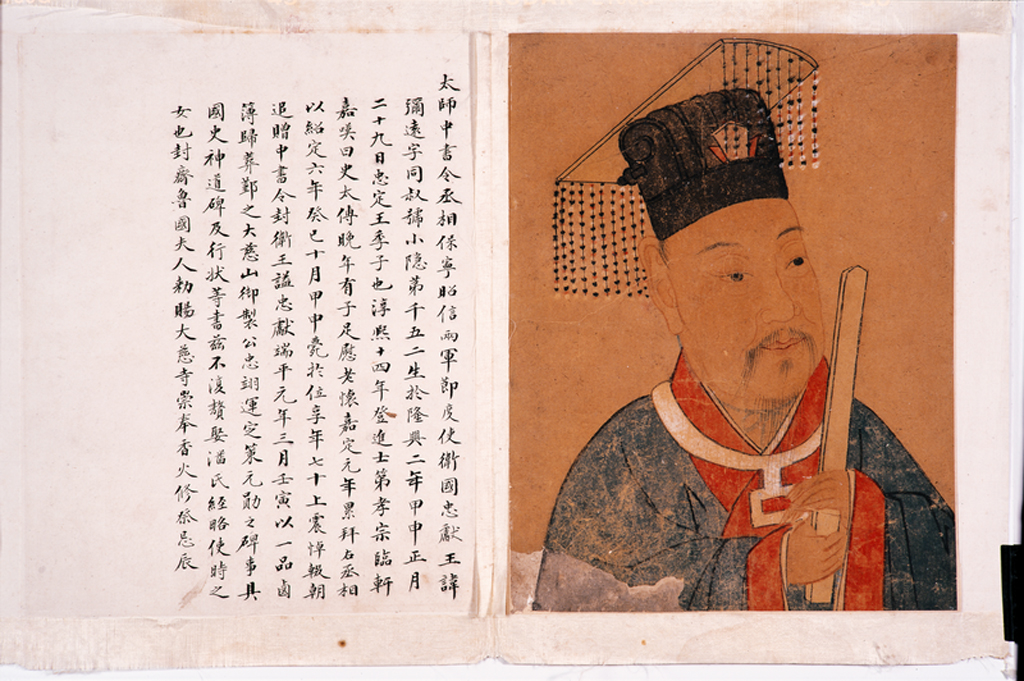 太師中書令丞相保寧昭信兩軍節度使衛國忠獻王諱
彌遠字同叔號小隐第千五二生於隆興二年甲申正月
二十九日忠定王季子也淳熙十四年登進士第孝宗臨軒
嘉嘆曰史太傅晚年有子足慰老懷嘉定元年累拜右丞相
以紹定六年癸巳十月甲申薨於位享年七十上震悼輟朝
追贈中書令封衛王謚忠獻端平元年三月壬寅以一品鹵
簿歸葬鄞之大慈山御製公忠翊運定策元勛之碑事具
國史神道碑及行状等書茲不復贅娶潘氏經略使時之
女也封齊魯國夫人勑賜大慈寺崇奉香火修祭忌辰